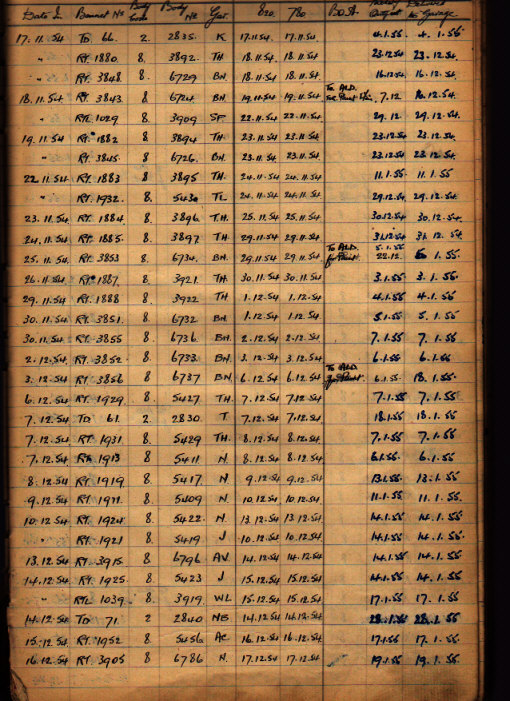 Date In Bonnet No Body Type Body No Gar. 820. 780 Outfit Delivered to Garage
17.11.54 TD 66. 2 2835. K 17.11.54. 17.11.54. 4.1.55. 4.1.55
" RT. 1880. 8. 3892. TH 18.11.54 18.11.54. 23.12.54 23.12.54.
" RT. 3848 8. 6729 BN. 18.11.54 18.11.54. 16.12.54 16.12.54.
18.11.54 RT. 3843 8. 6724 BN. 19.11.54 19.11.54 To ALD. 7.12 16.12.54.
" RTL 1029 8. 3909 SF 22.11.54 22.11.54. 29.12. 29.12.54.
19.11.54 RT. 1882 8. 3894 TH 23.11.54 23.11.54. 23.12.54 23.12.54.
" RT. 3845 8 6726. BN. 23.11.54. 23.11.54. 23.12.54 23.12.54.
22.11.54 RT. 1883 8 3895 TH 24.11.54 24.11.54. 11.1.55 11.1.55
" RT. 1932. 8. 5430 TL 24.11.54 24.11.54. 29.12.54. 29.12.54.
23.11.54. RT. 1884 8 3896. TH. 25.11.54 25.11.54. 30.12.54 30.12.54.
24.11.54 RT. 1885. 8 3897 TH 29.11.54 29.11.54. 31.12.54 31.12.54
25.11.54. RT. 3853 8 6734. BN. 29.11.54 29.11.54 To ALD. for Paint 5.1.55 22.12. 5.1.55.
26.11.54 RT. 1887. 8 3921 TH. 30.11.54 30.11.54. 3.1.55 3.1.55.
29.11.54 RT. 1888 8 3922 TH 1.12.54 1.12.54. 4.1.55 4.1.55
30.11.54 RT. 3851. 8 6732 BN. 1.12.54 1.12.54. 5.1.55 5.1.55.
30.11.54 RT. 3855 8 6736. BN. 2.12.54 2.12.54 7.1.55 7.1.55.
2.12.54 RT. 3852. 8 6733. BN. 3.12.54 3.12.54. 6.1.55. 6.1.55
3.12.54 RT. 3856 8 6737 BN. 6.12.54 6.12.54. To ALD for Paint 6.1.55. 18.1.55.
6.12.54 RT. 1929. 8 5427 TH. 7.12.54 7.12.54 7.1.55 7.1.55.
7.12.54 TD 61. 2 2830. T. 7.12.54 7.12.54 18.1.55 18.1.55
7.12.54 RT. 1931 8. 5429 TH. 8.12.54 8.12.54. 7.1.55. 7.1.55
7.12.54 RT. 1913 8. 5411 N. 8.12.54 8.12.54. 6.1.55. 6.1.55
8.12.54 RT. 1919 8. 5417 N. 9.12.54 9.12.54. 13.1.55 13.1.55
9.12.54 RT. 1911. 8. 5409 N. 10.12.54 10.12.54. 11.1.55 11.1.55.
10.12.54 RT. 1924 8. 5422. N. 13.12.54 13.12.54. 14.1.55 14.1.55
" RT. 1921 8. 5419 J 10.12.54 10.12.54. 14.1.55 14.1.55.
13.12.54 RT. 3915. 8 6796 AV. 14.12.54 14.12.54 14.1.55 14.1.55.
14.12.54 RT. 1925. 8 5423 J 15.12.54 15.12.54. 14.1.55 14.1.55
" RTL 1039. 8 3919 WL 15.12.54 15.12.54 17.1.55 17.1.55
14.12.54 TD 71 2 2840 NB 14.12.54 14.12.54 28.1.55 28.1.55
15.12.54 RT. 1952 8 5456 AC 16.12.54 16.12.54. 17.1.55 17.1.55.
16.12.54 RT. 3905 8 6786 N. 17.12.54 17.12.54. 19.1.55 19.1.55.